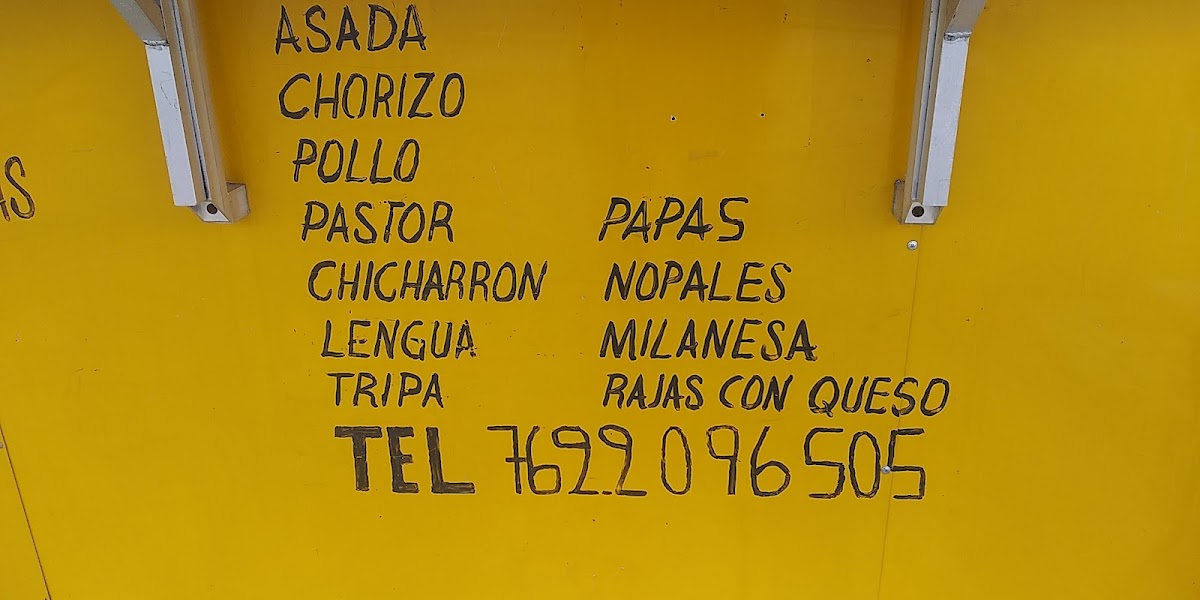 ASADA
CHORIZO
POLLO
PASTOR PAPAS
CHICHARRON NOPALES
LENGUA MILANESA
TRIPA RAJAS CON QUESO
TEL 7622096505